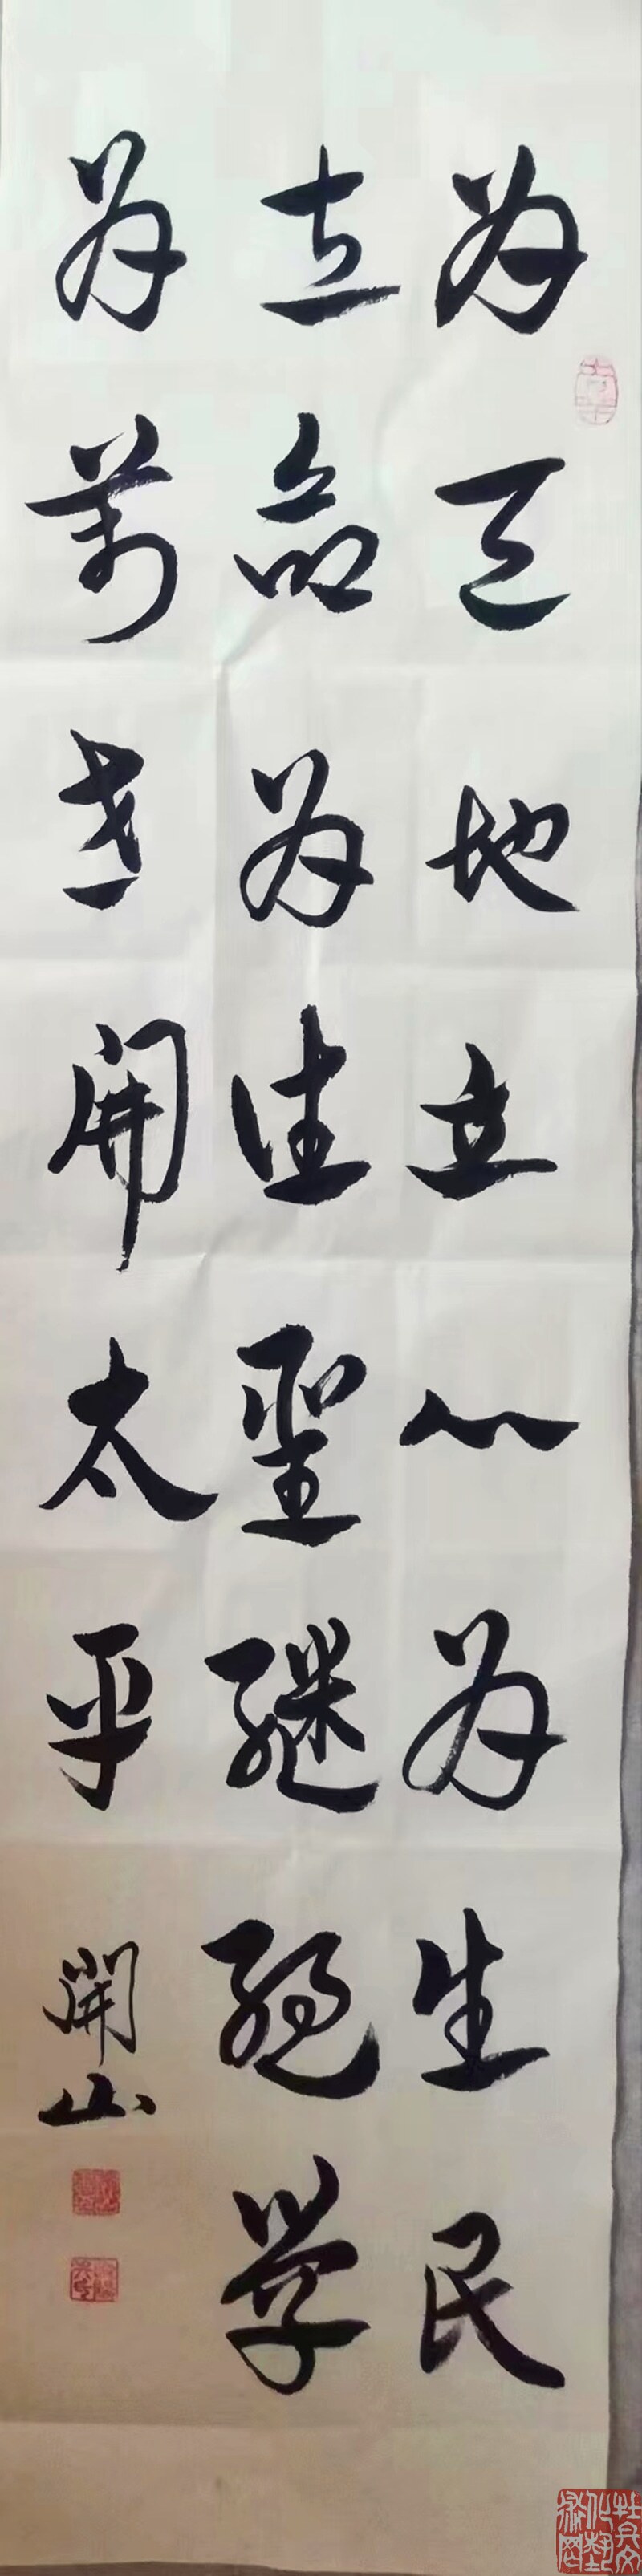 为天地立心为生民
立命为往聖継绝学
为萬世開太平
開山